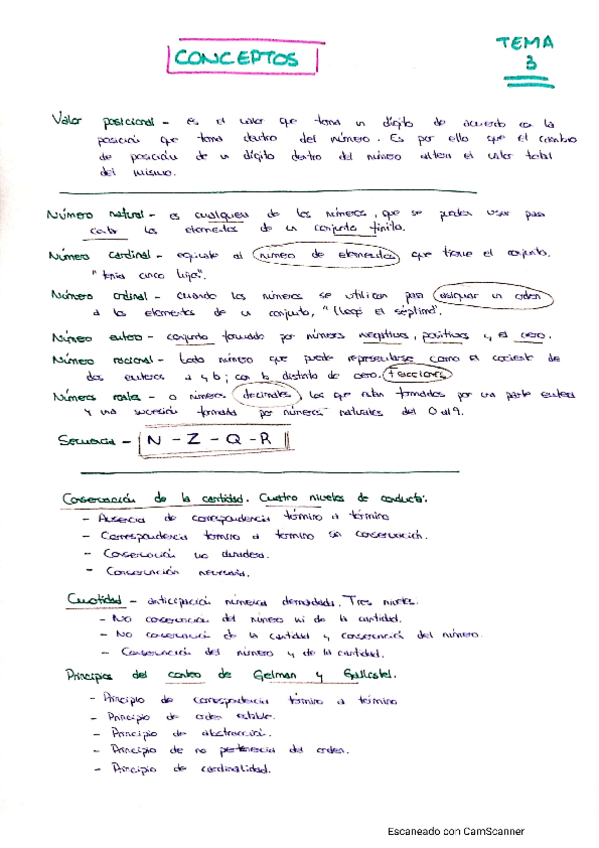 CONCEPTOS
TEMA
3
Valor posicional - es el valor que toma un dígito de acuerdo con la
posición que toma dentro del número. Es por ello que el cambio
de posición de un dígito dentro del número altera el valor total
del mismo.
Número natural - es cualquiera de los números, que se pueden usar para
contar los elementos de un conjunto finito.
Número cardinal - equivale al número de elementos que tiene el conjunto.
"tenía cinco hijos".
Número ordinal - cuando los números se utilizan para asignar un orden
a los elementos de un conjunto, "llegó el séptimo".
Número entero - conjunto formado por números negativos, positivos y el cero.
Número racional - todo número que puede representarse como el cociente de
dos enteros a y b; con b distinto de cero. Fracciones
Números reales - o números decimales, los que están formados por una parte entera
y una sucesión formada por números naturales del 0 al 9.
Secuencia - N - Z - Q - R
Conservación de la cantidad. Cuatro niveles de conducta:
- Ausencia de correspondencia término a término
- Correspondencia término a término sin conservación.
- Conservación no duradera.
- Conservación necesaria.
Cuotidad - anticipación numérica demandada. Tres niveles.
- No conservación del número ni de la cantidad.
- No conservación de la cantidad y conservación del número.
- Conservación del número y de la cantidad.
Principios del conteo de Gelman y Gallistel.
- Principio de correspondencia término a término
- Principio de orden estable.
- Principio de abstracción.
- Principio de no pertenencia del orden.
- Principio de cardinalidad.
Escaneado con CamScanner